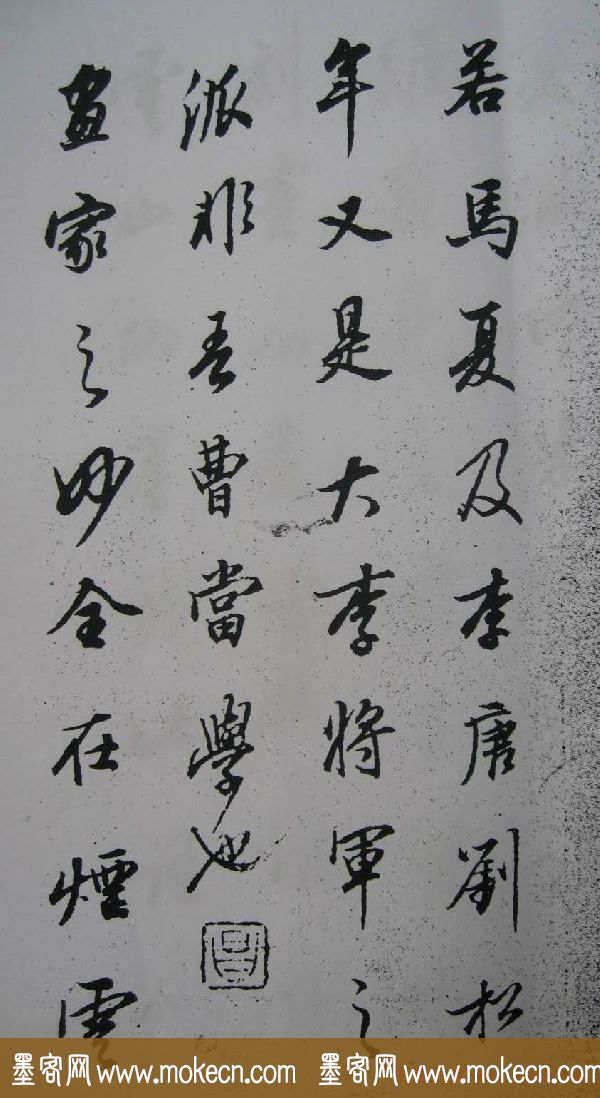 若馬夏及李唐劉松
年又是大李將軍之
派非吾曹當學也
畫家之妙全在煙雲
墨客网 www.mokecn.com 墨客网 www.mokecn.com